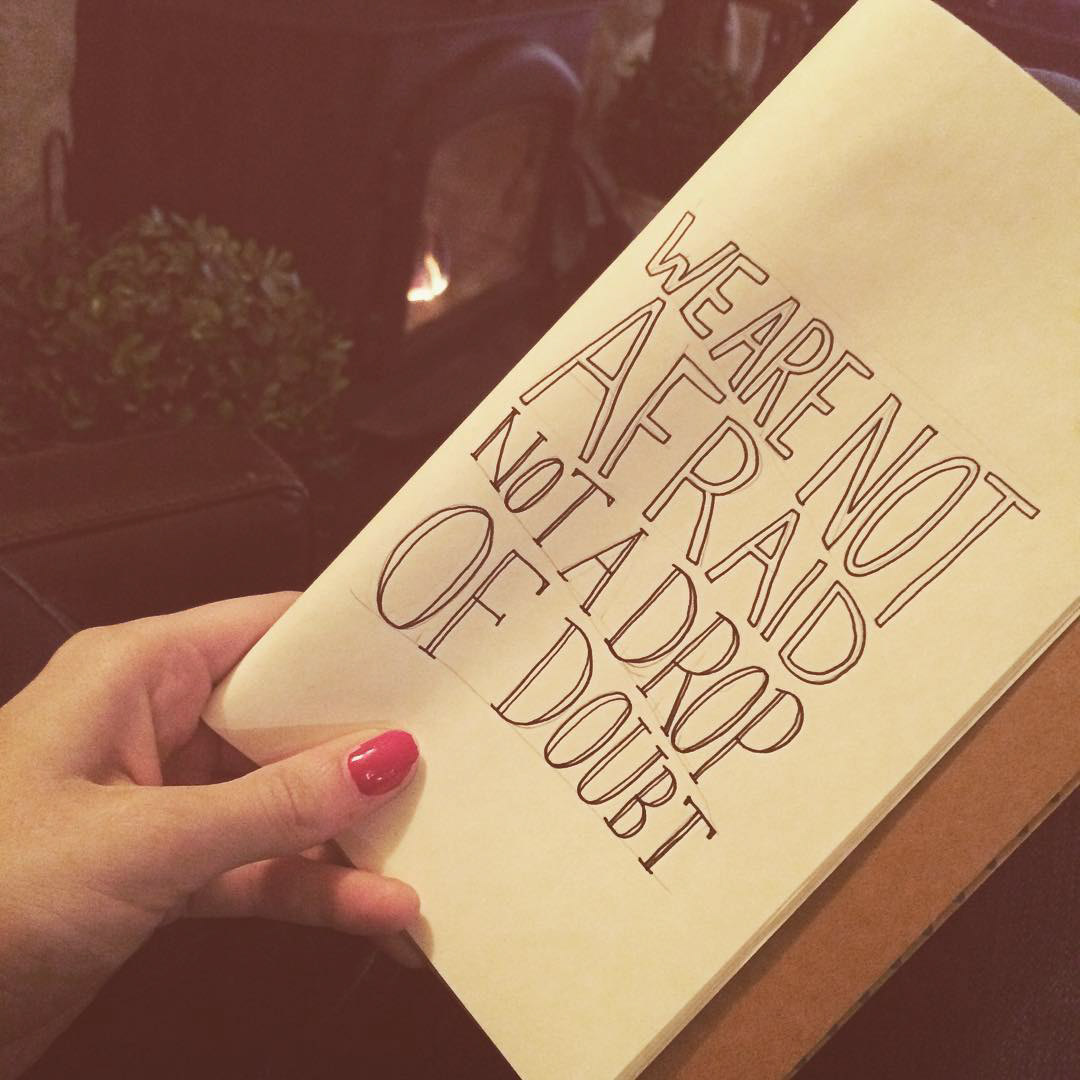 WE ARE NOT
AFRAID
NOT A DROP
OF DOUBT